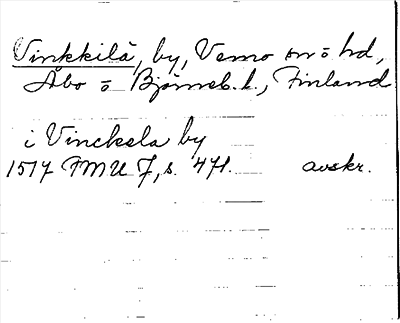 Vinkkilä, by, Vemo sn o hd,
Åbo o Björneb. l., Finland
i Vincksla by
1517 FMU 7, s. 471. avskr.